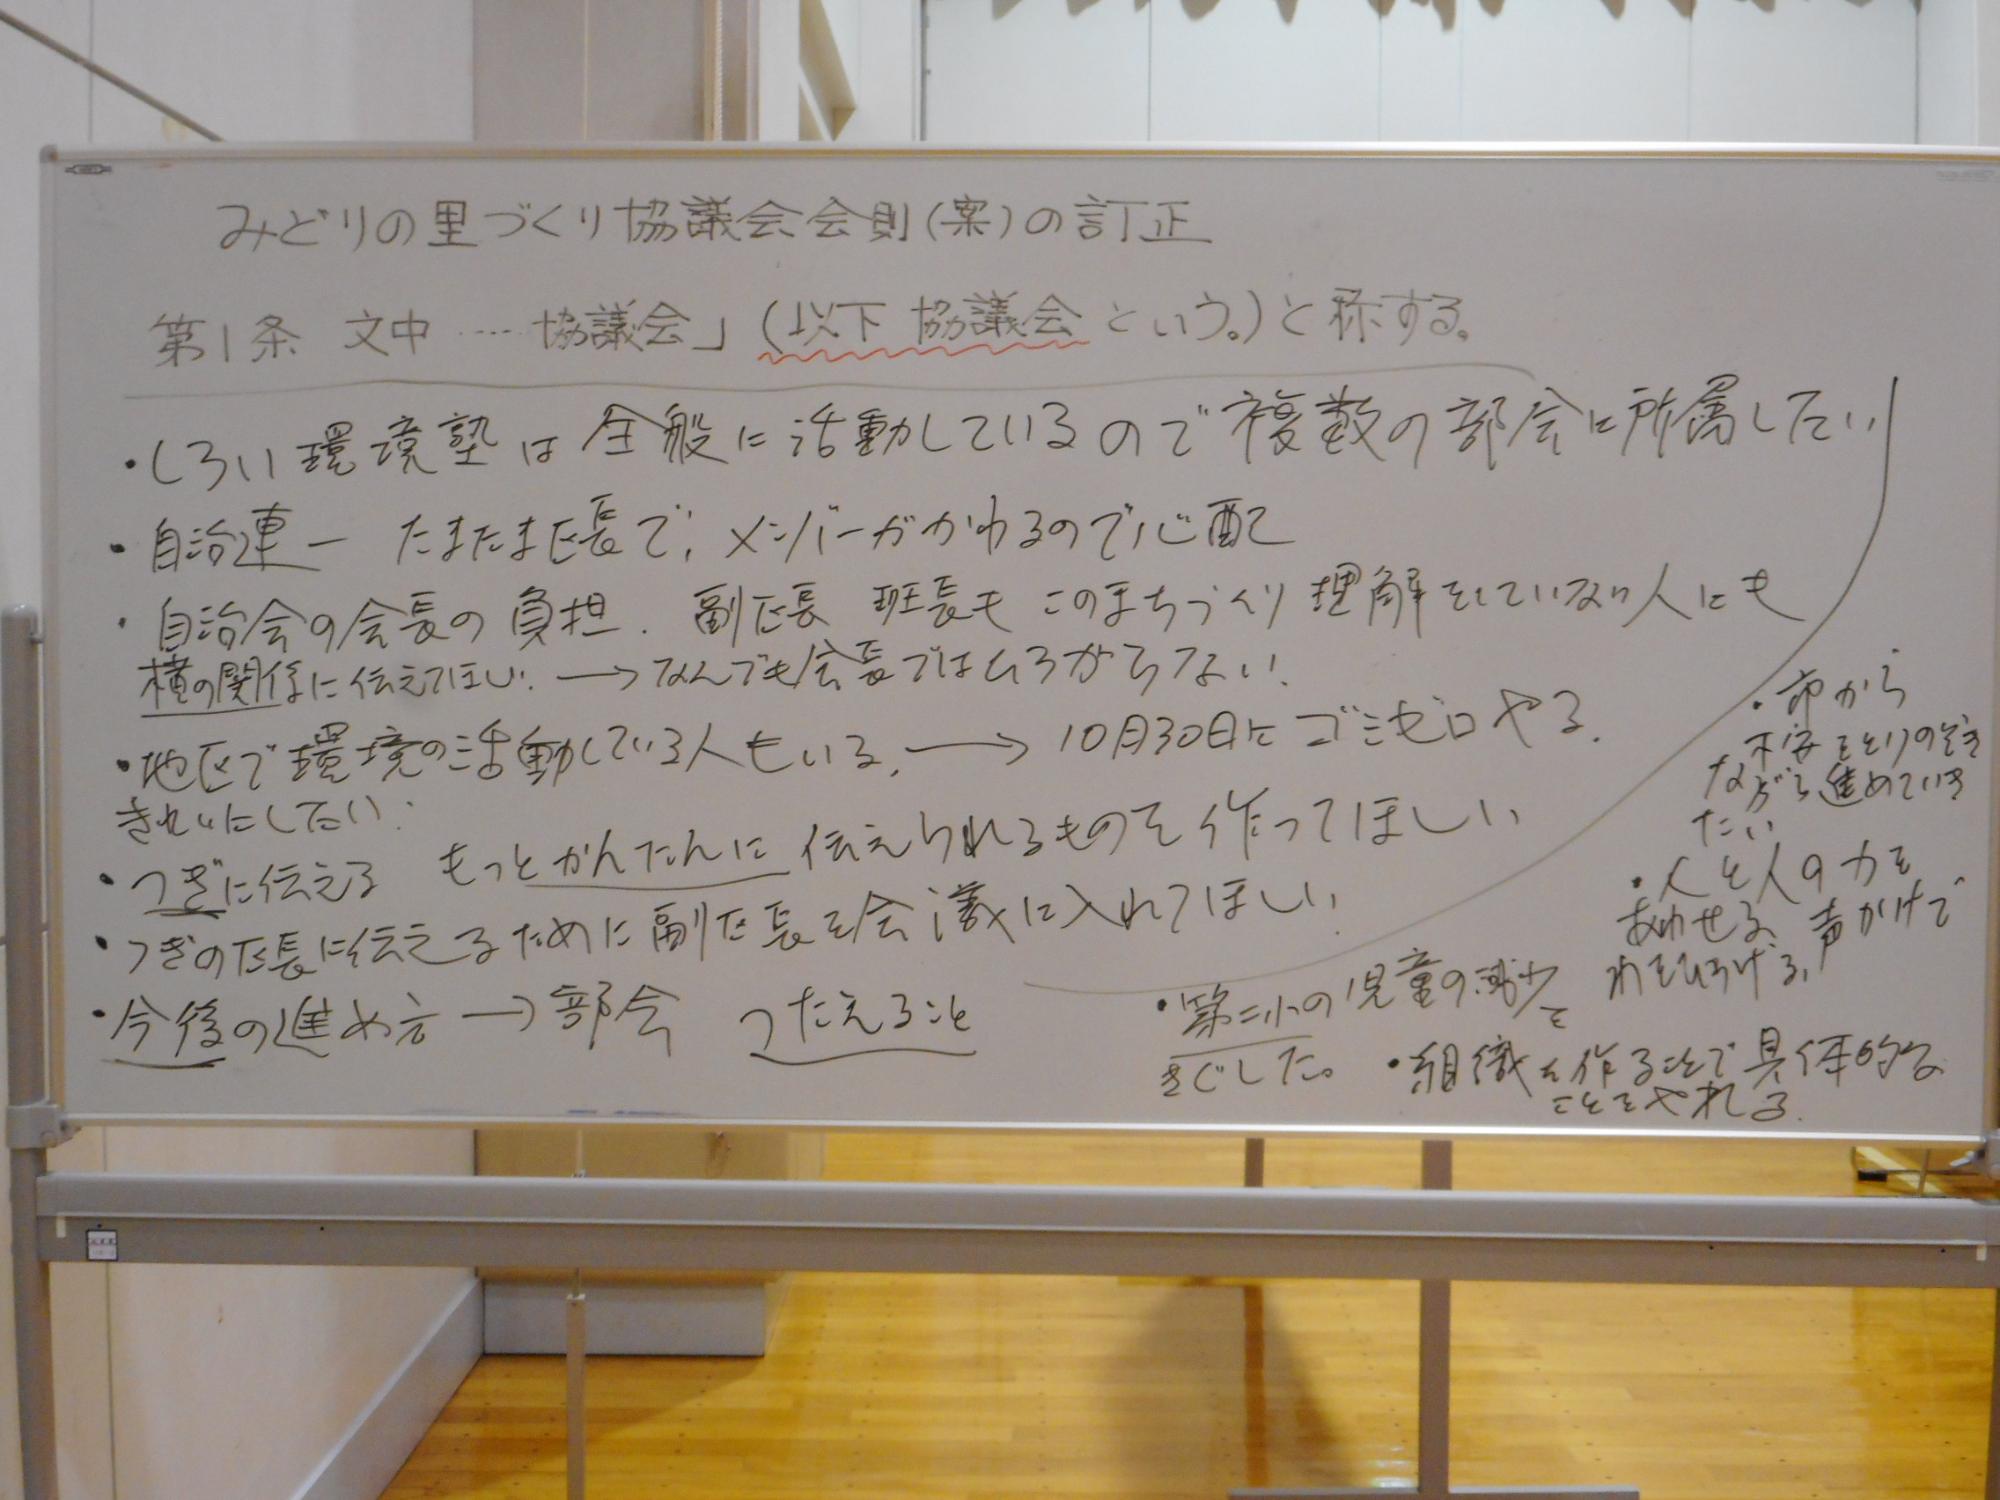 みどりの里づくり協議会会則(案)の訂正
第1条 文中 ……協議会」(以下 協議会 という。)と称する。
・しろい環境塾は全般に活動しているので複数の部会に所属したい
・自治連ー たまたま区長で、メンバーがかわるので心配
・自治会の会長の負担. 副区長 班長も このまちづくり 理解をしていない人にも
横の関係に伝えてほしい. → なんでも会長ではひろがらない.
・地区で環境の活動している人もいる. → 10月30日に ゴミゼロ やる.
きれいにしたい.
・つぎに伝える もっとかんたんに 伝えられるものを作ってほしい
・つぎの区長に伝えるために副区長を会議に入れてほしい.
・今後の進め方 → 部会 つたえること
・市から
不安をとりのぞき
ながら進めていき
たい
・人と人の力を
あわせる、声かけで
わをひろげる.
・第二小の児童の減少を
きぐした。
・組織を作ることで具体的な
ことをやれる.